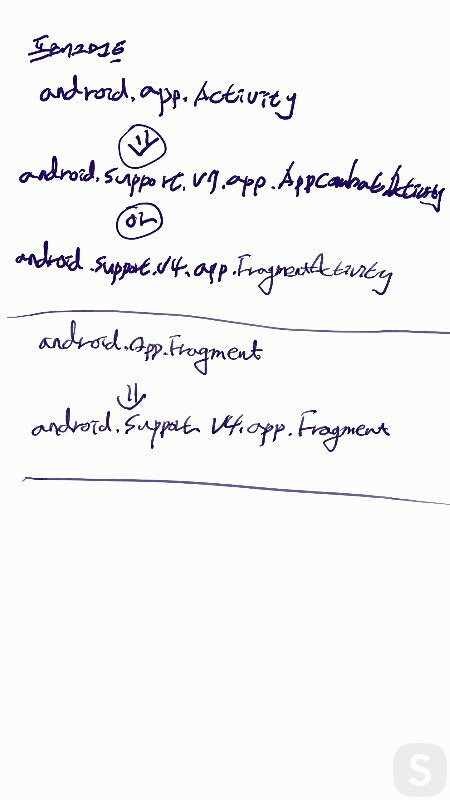 android.app.Activity
android.support.v7.app.AppCombatActivity
or
android.support.v4.app.FragmentActivity
android.app.Fragment
android.support v4.app.Fragment
S